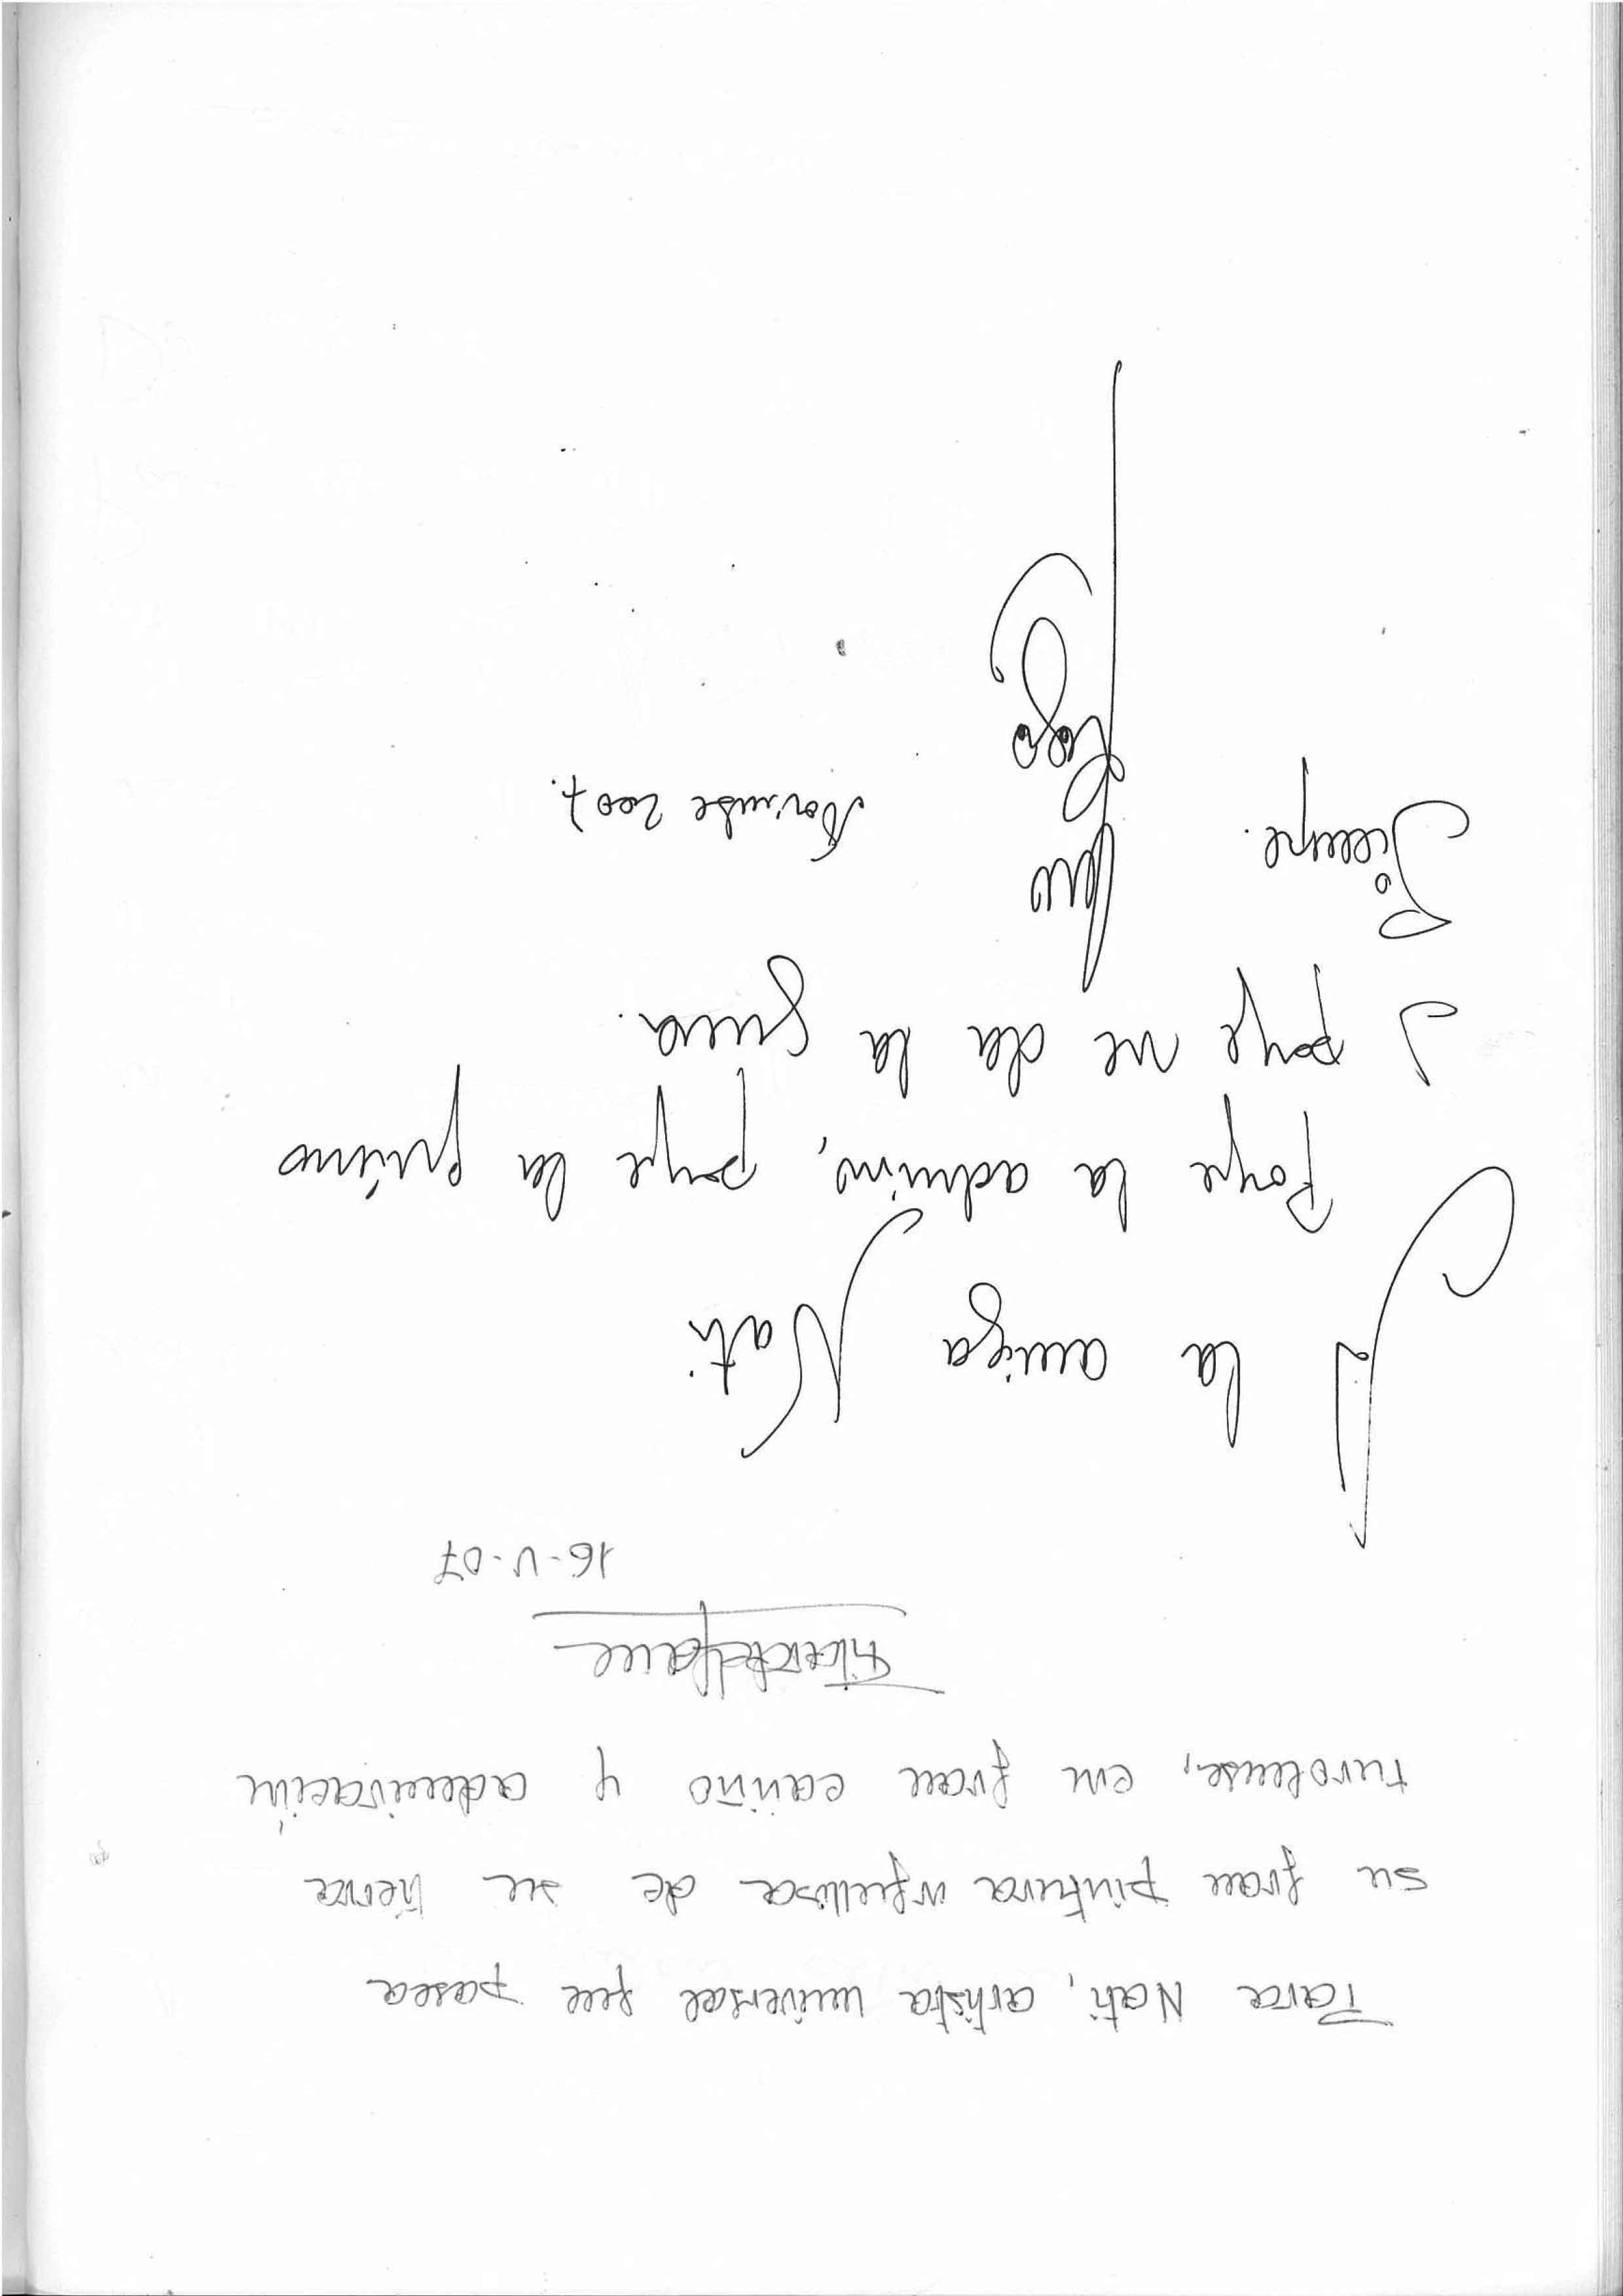 Para Nati, artista universal que pasea
su gran pintura orgullosa de su tierra
turolense, con gran cariño y admiración
16-V-07
A la amiga Nati.
Porque la admiro, porque la
y porque me da la gana.
Siempre.
Noviembre 2007.